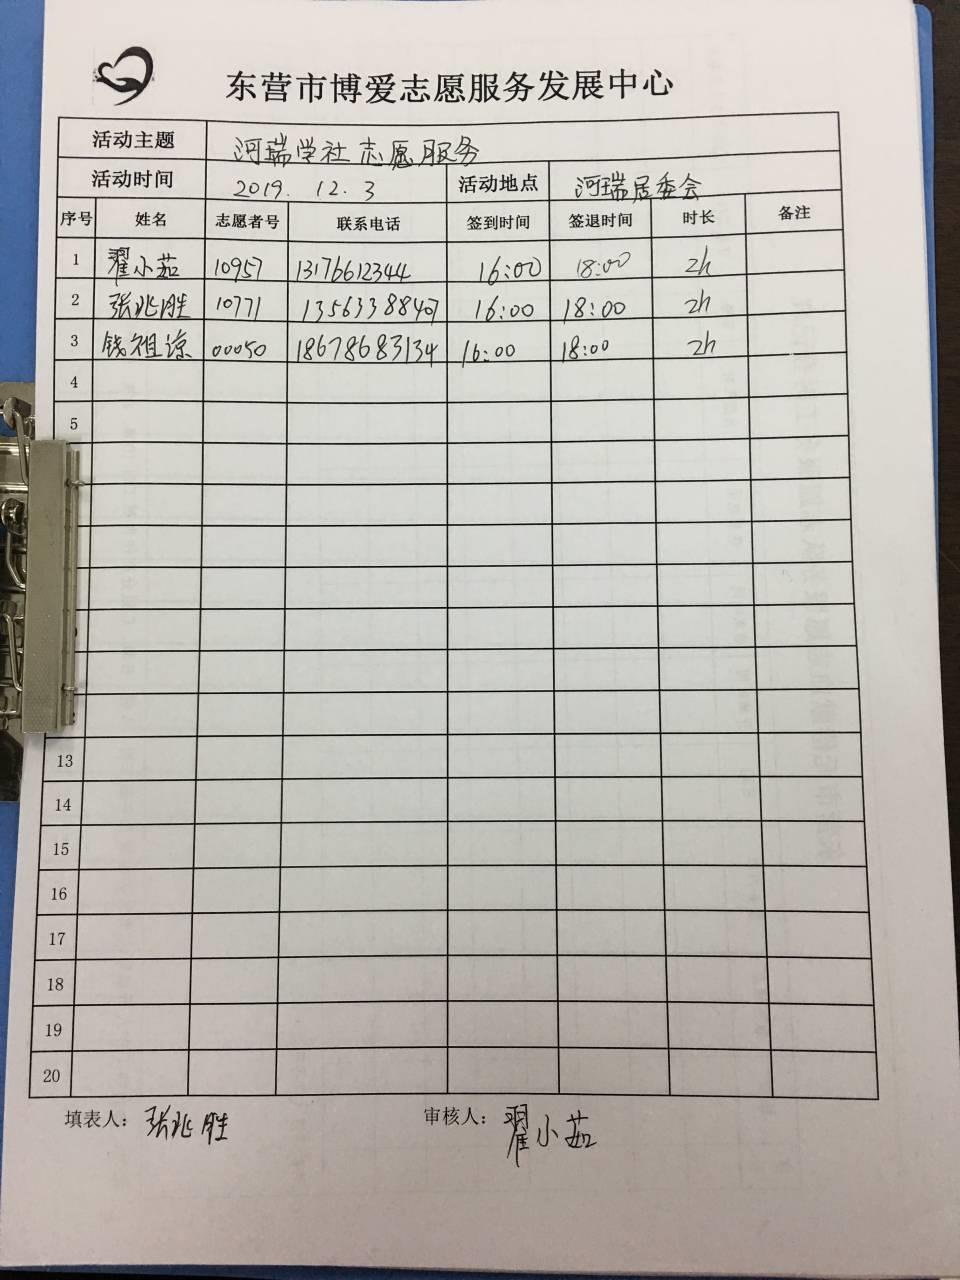 东营市博爱志愿服务发展中心
活动主题 河瑞学社志愿服务
活动时间 2019.12.3 活动地点 河瑞居委会
序号 姓名 志愿者号 联系电话 签到时间 签退时间 时长 备注
1 翟小茹 10957 13176612344 16:00 18:00 2h
2 张兆胜 10771 13563388407 16:00 18:00 2h
3 钱祖谅 00050 18678683134 16:00 18:00 2h
4
5
13
14
15
16
17
18
19
20
填表人：张兆胜 审核人：翟小茹